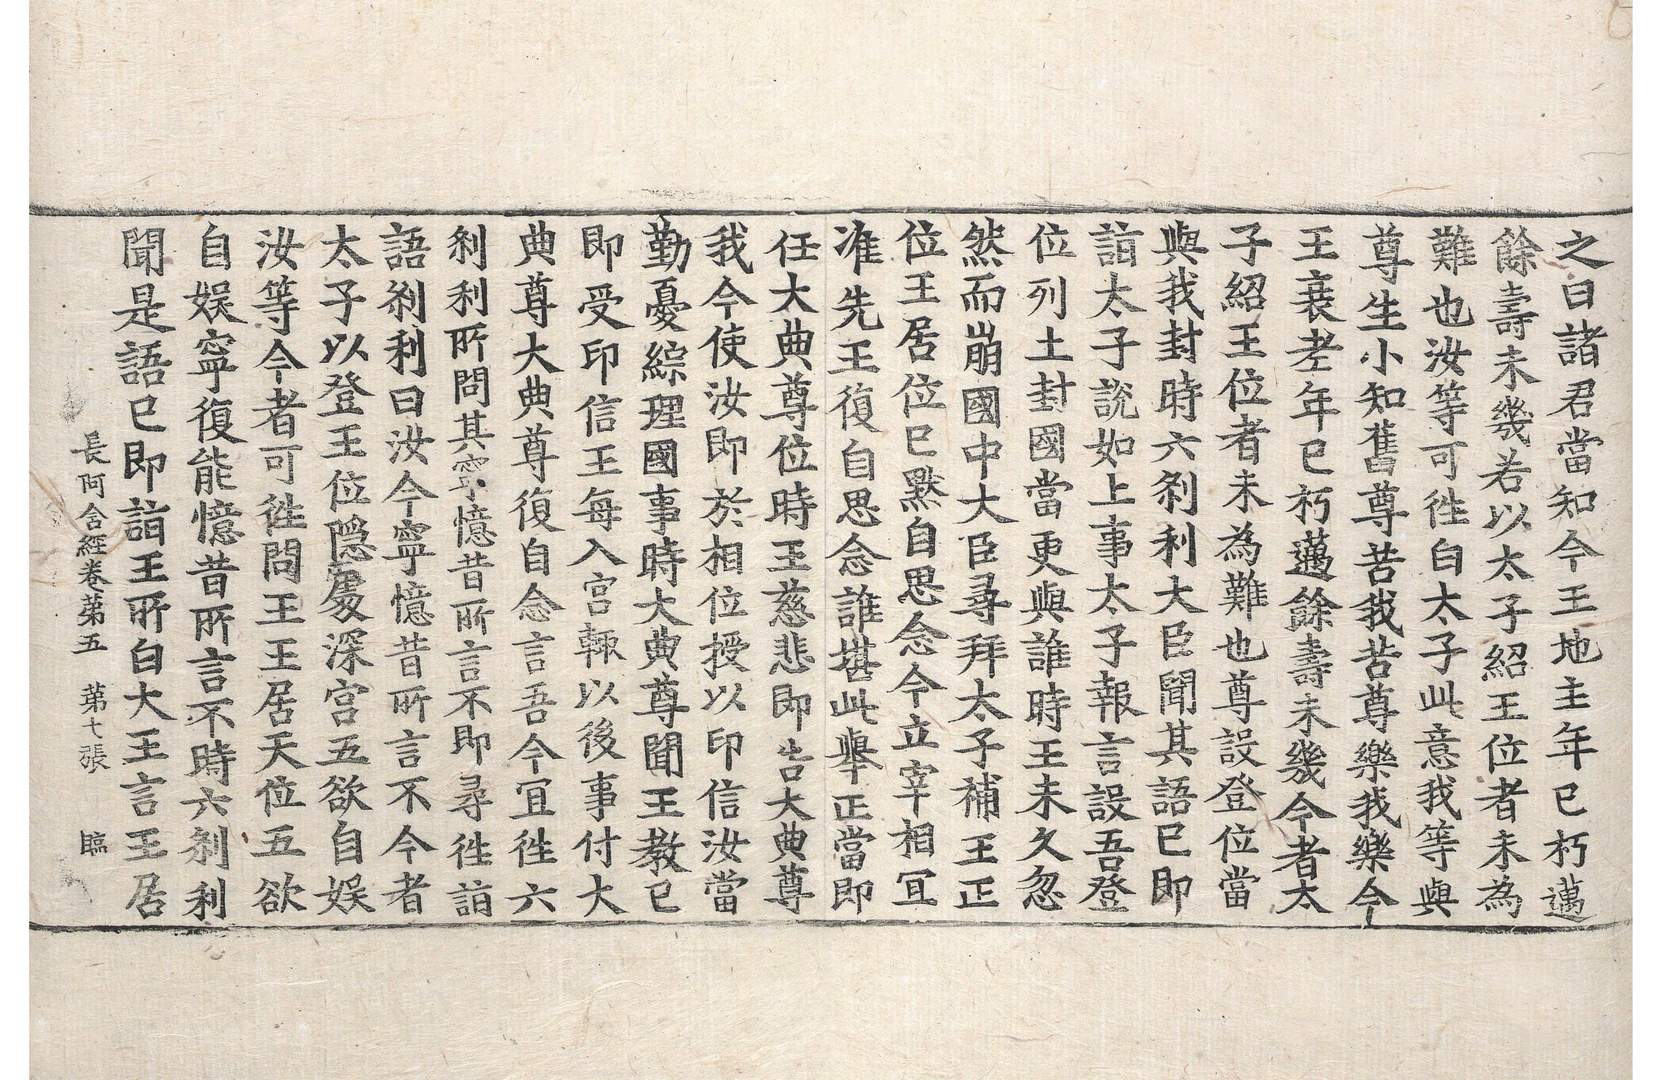 之曰諸君當知今王地主年已朽邁
餘壽未幾若以太子紹王位者未為
難也汝等可徃白太子此意我等與
尊生小知舊尊苦我苦尊樂我樂今
王衰老年已朽邁餘壽未幾今者太
子紹王位者未為難也尊設登位當
與我封時六剎利大臣聞其語已即
詣太子說如上事太子報言設吾登
位列土封國當更與誰時王未久忽
然而崩國中大臣尋拜太子補王正
位王居位已默自思念今立宰相冝
准先王復自思念誰堪此舉正當即
任大典尊位時王慈悲即告大典尊
我今使汝即於相位授以印信汝當
勤憂綜理國事時大典尊聞王教已
即受印信王每入宮輙以後事付大
典尊大典尊復自念言吾今冝徃六
剎利所問其寧憶昔所言不即尋徃詣
語剎利曰汝今寧憶昔所言不今者
太子以登王位隱處深宮五欲自娛
汝等今者可徃問王王居天位五欲
自娛寧復能憶昔所言不時六剎利
聞是語已即詣王所白大王言王居
長阿含經卷第五　第七張　臨